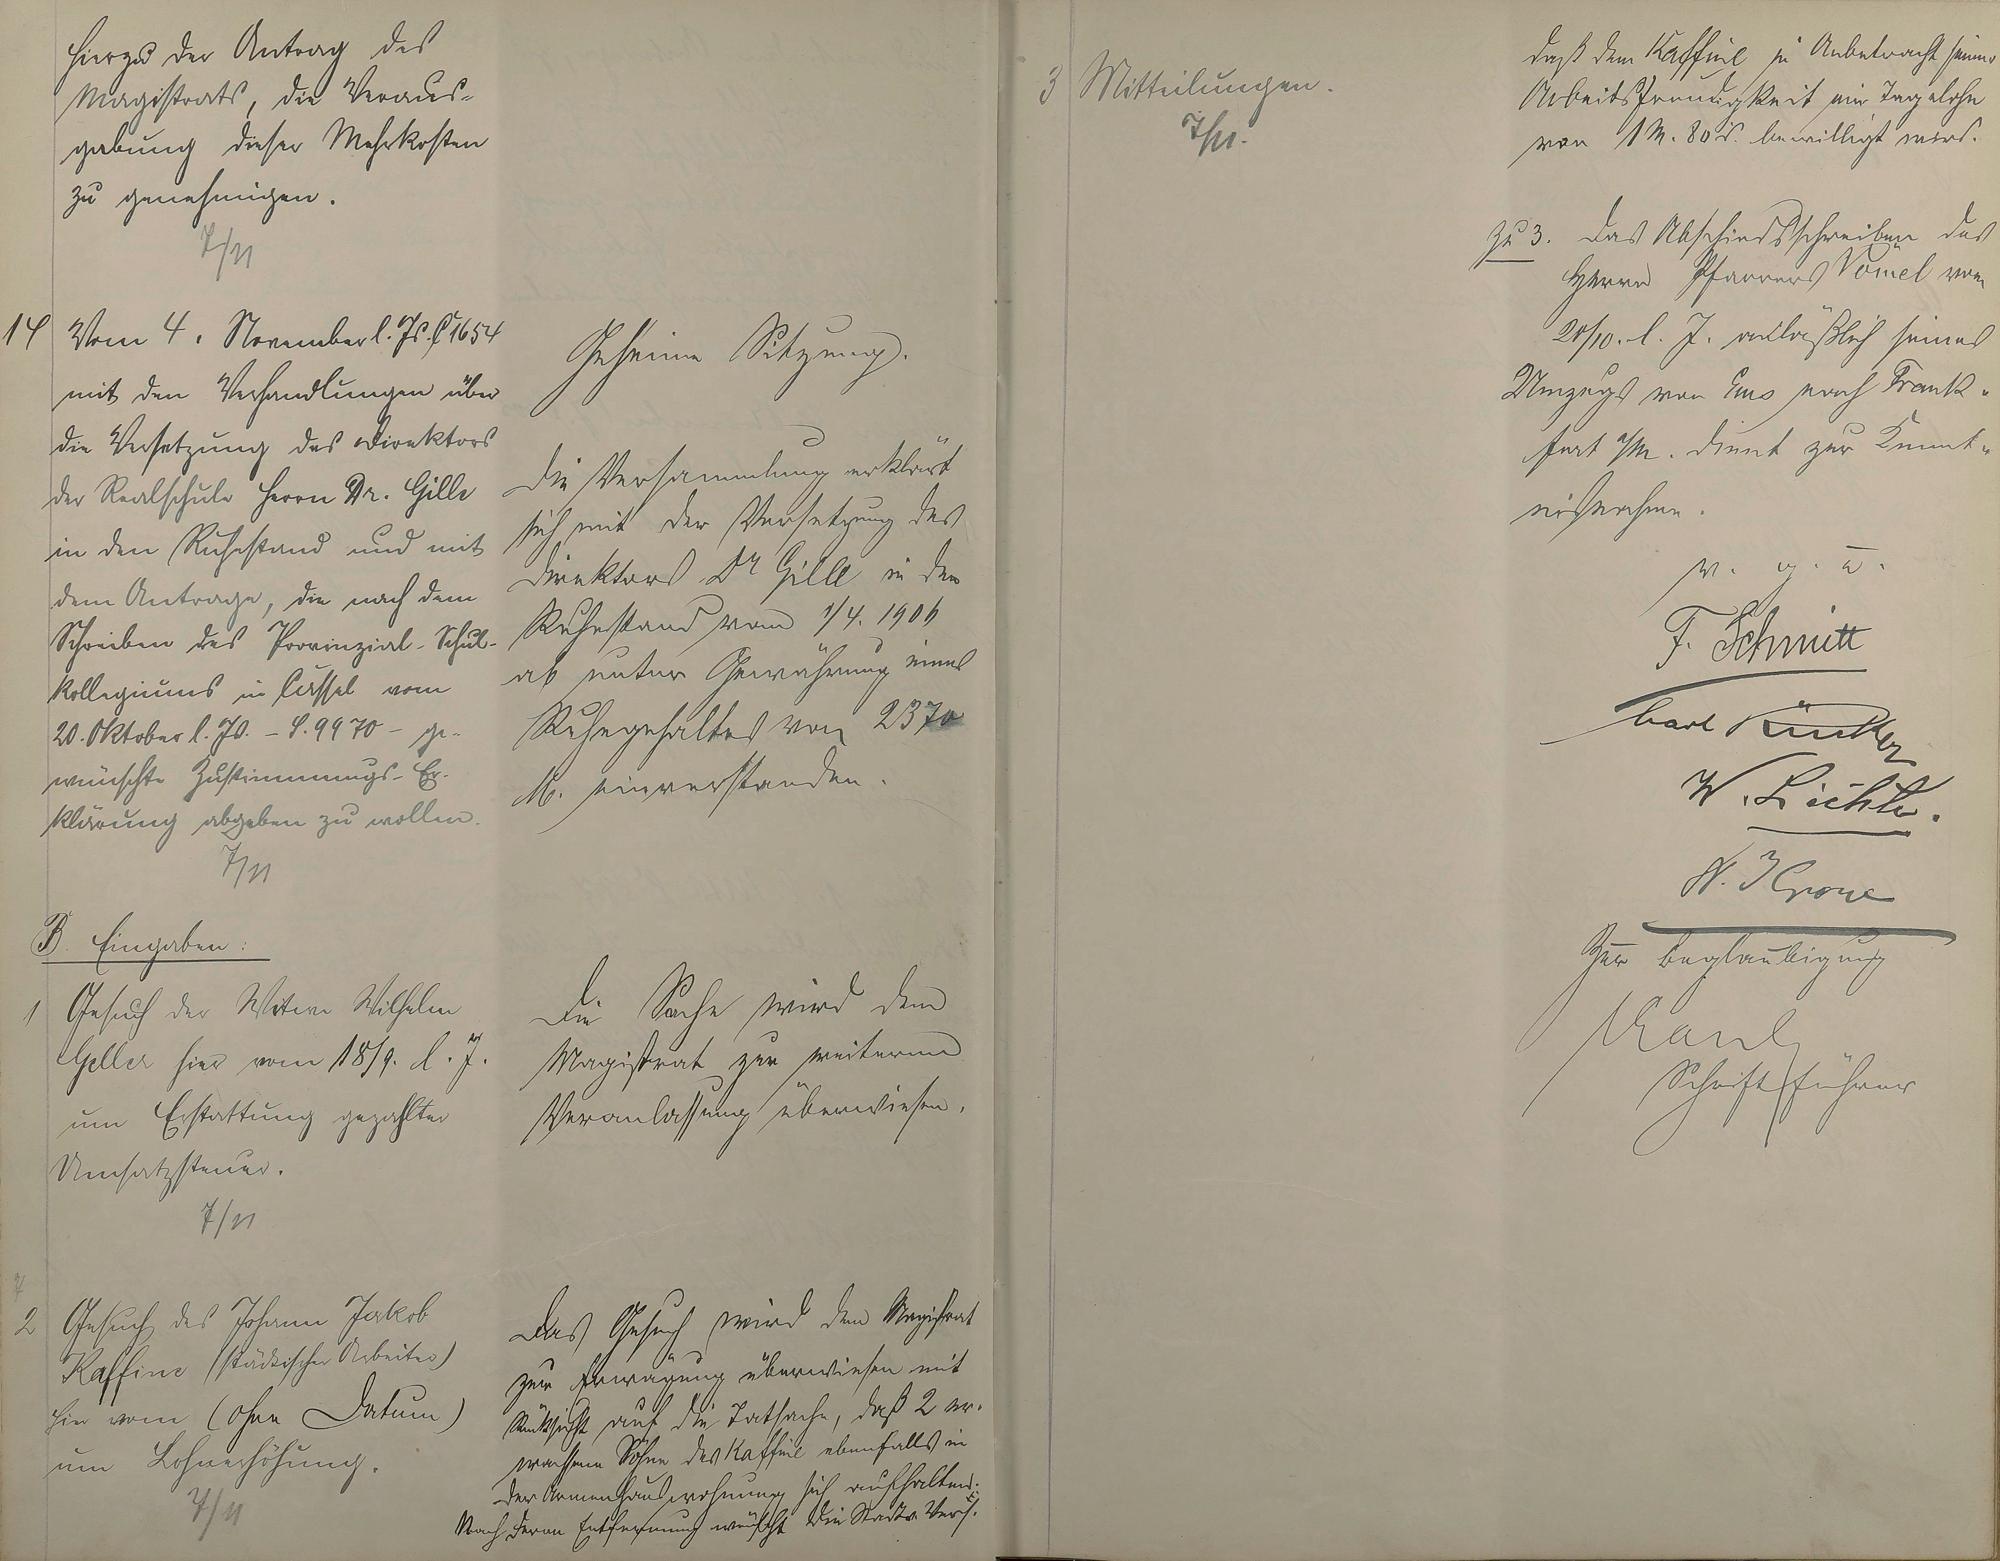 hierzu der Antrag des
Magistrats, die Veraus-
gabung dieser Mehrkosten
zu genehmigen.
7/11
14 Vom 4. November l. Js. C 1654
mit den Verhandlungen über
die Versetzung des Direktors
der Realschule Herrn Dr. Gille
in den Ruhestand und mit
dem Antrage, die nach dem
Schreiben des Provinzial-Schul-
kollegiums in Cassel vom
20. Oktober l. Js. - S. 9970 - ge-
wünschte Zustimmungs-Er-
klärung abgeben zu wollen.
7/11
Geheime Sitzung.
Die Versammlung erklärt
sich mit der Versetzung des
Direktors Dr Gille in den
Ruhestand vom 1/4. 1906
ab unter Gewährung eines
Ruhegehaltes von 2370
M. einverstanden.
B. Eingaben:
1 Gesuch der Witwe Wilhelm
Geller hier vom 18/9. l. J.
um Erstattung gezahlter
Umsatzsteuer.
7/11
Die Sache wird dem
Magistrat zur weiteren
Veranlassung überwiesen.
2 Gesuch des Johann Jakob
Kaffine (städtischer Arbeiter)
hier vom (ohne Datum)
um Lohnerhöhung.
7/11
Das Gesuch wird dem Magistrat
zur Erwägung überwiesen mit
Rücksicht auf die Tatsache, daß 2 er-
wachsene Söhne des Kaffine ebenfalls in
der Armenhauswohnung sich aufhalten.
Nach deren Entfernung wünscht die Stadtv. Vers.
3 Mitteilungen.
7/11.
daß dem Kaffine in Anbetracht seiner
Arbeitsfreudigkeit ein Tagelohn
von 1 M. 80 bewilligt wird.
zu 3. Das Abschiedsschreiben des
Herrn Pfarrers Vömel vom
20/10. l. J. anläßlich seines
Umzugs von Ems nach Frank-
furt a/M. dient zur Kennt-
nisnahme.
v. g. u.
F. Schmitt
Carl Rücker
W. Lichte.
Krone
Zur Beglaubigung
Schriftführer